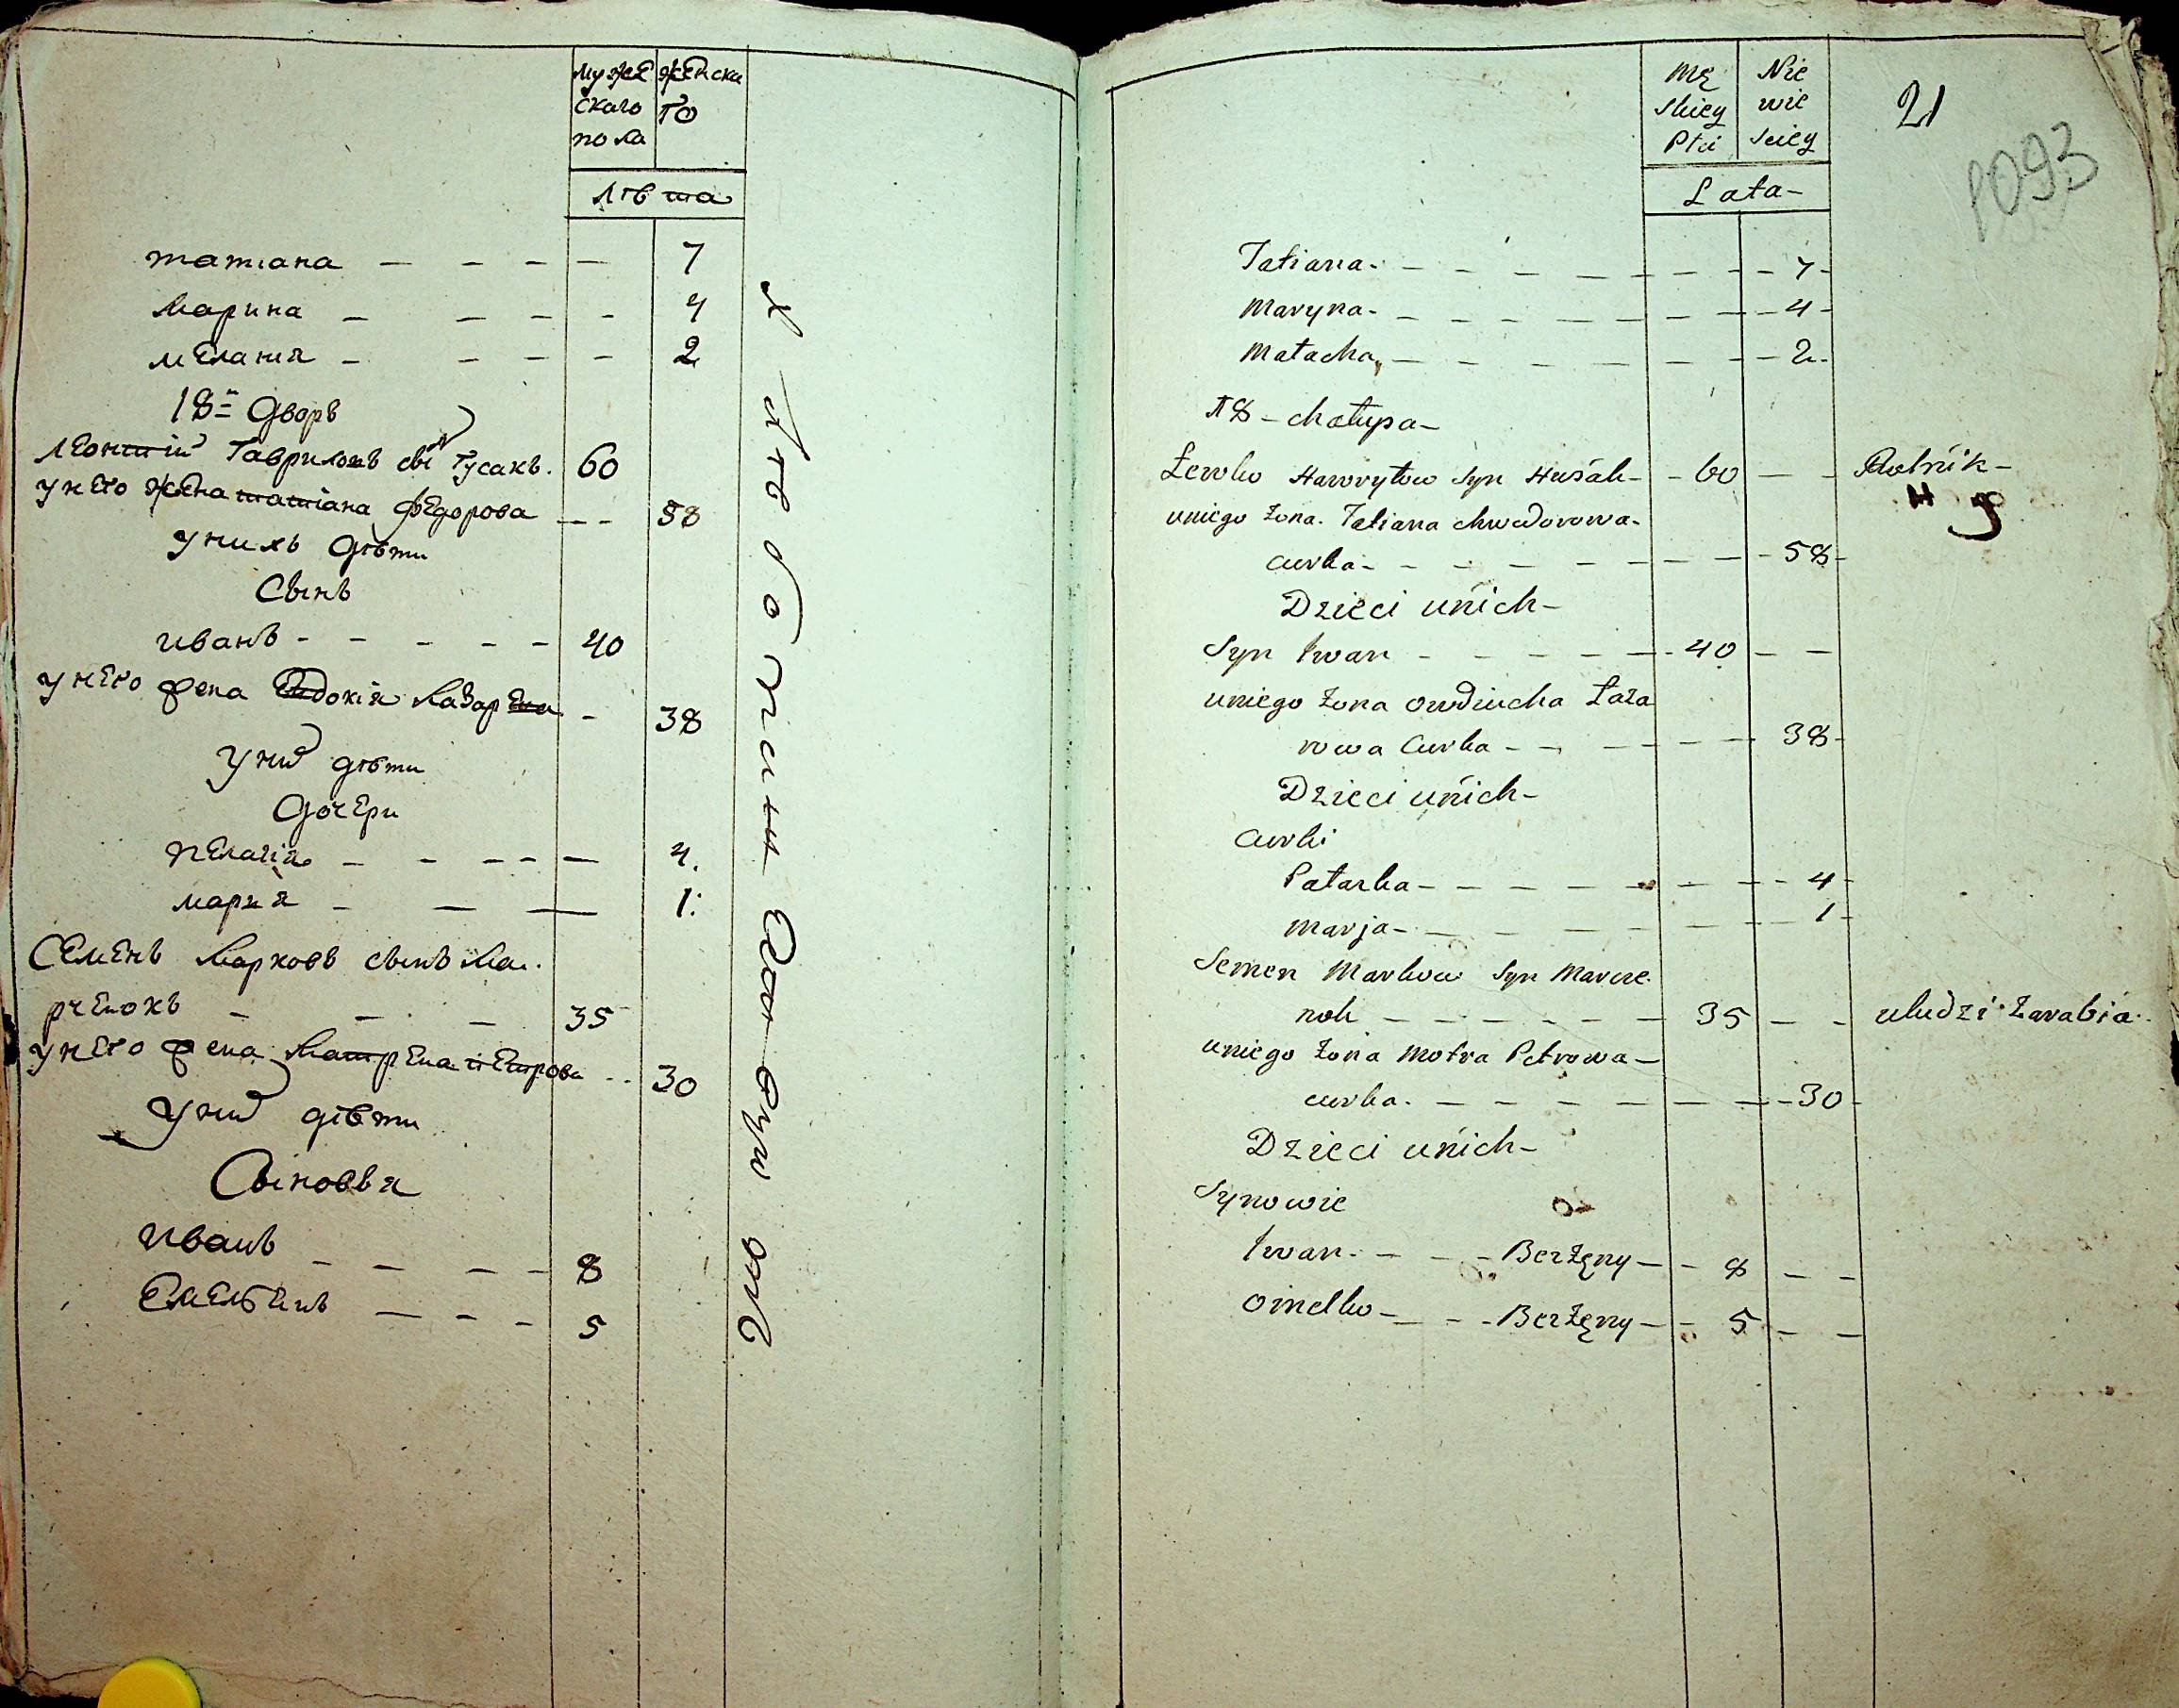 мужe женска
скаго го
пола
лѣта
татiана — — — — 7
Марина — — — — 4
меланiя — — — — 2
18й Дворъ
Леонтiй Гавриловъ сынъ Гусакъ. 60
у него жена татiана федорова — — 58
у нихъ дѣти
Сынъ
иванъ - - - - - 40
у него жена Евдокiя Лазарева - 38
у них дѣти
дочери
пелагiя — — — — — 4.
марiя — — — 1:
Семенъ Марковъ сынъ Ма.
рченокъ — — — 35
у него жена Матрена петрова - - 30
у них дѣти
Сыновья
иванъ — — — — 8
Емельянъ — — — 5
Mę Nie
skiey wie
Płci sciey
Lata-
21
1093
Tatiana - - - - - - 7-
Maryna - - - - - - 4-
Małacha - - - - - - 2-
18 - chałupa-
Łewko Hawryłow Syn Husak - - 60 — - Rolnik-
uniego żona Tatiana chwedorowa-
curka - - - - - - 58-
Dzieci unich-
Syn Iwan - - - - - 40 — —
uniego żona owdiucha Łaza
rowa Curka - - - - - 38-
Dzieci unich-
Curki
Patarka - - - - - - 4-
Marja - - - - - - 1-
Semen Markow Syn Marcze
nok - - - - - - 35 — - uludzi zarabia.
uniego żona Motra Petrowa-
curka - - - - - - 30-
Dzieci unich-
Synowie
Iwan - - - Bezżęny - - 8 - -
omelko - - - Bezżęny - - 5 - -